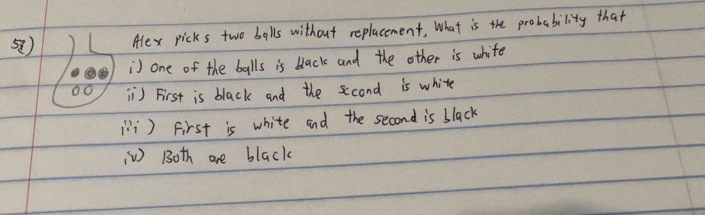 5g) Alex picks two balls without replacement, What is the probability that
i) One of the balls is black and the other is white
ii) First is black and the second is white
iii) First is white and the second is black
iv) Both are black